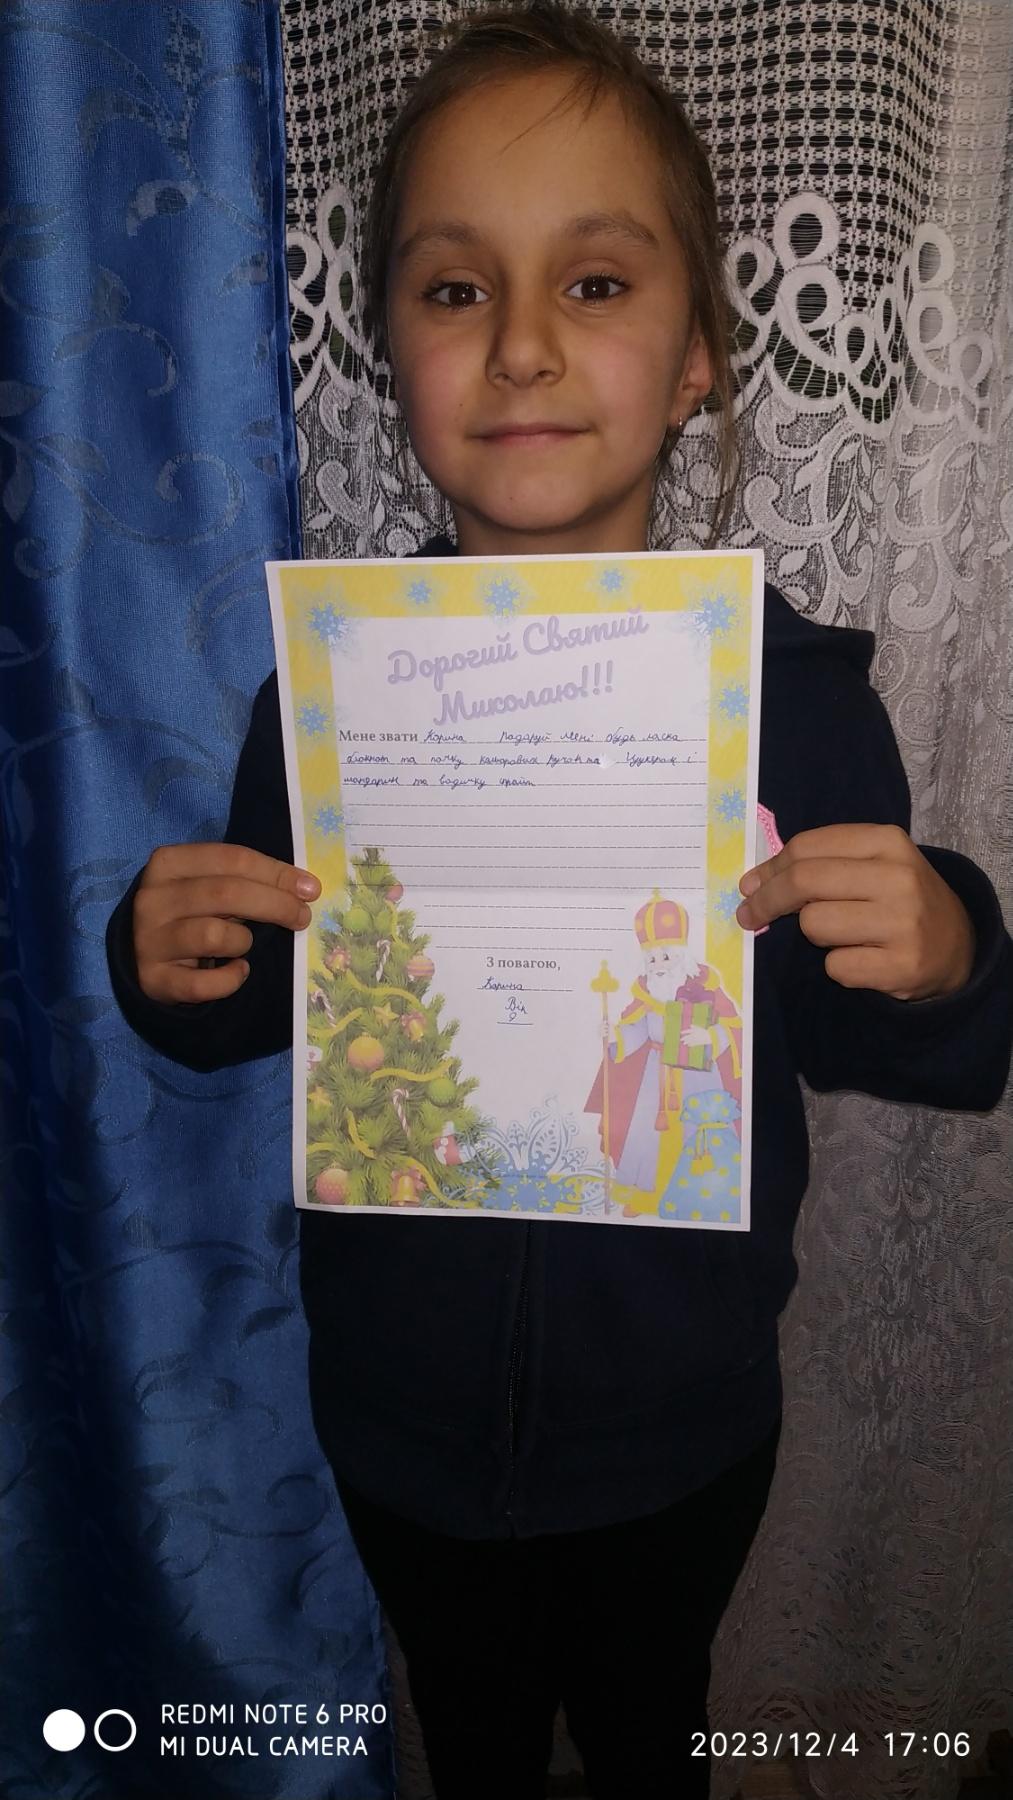 Дорогий Святий
Миколаю!!!
Мене звати Корина подаруй мені будь ласка
блокнот та пачку кольорових ручок та і
мандарин та водичку
З повагою,
Корина
Вік
9
REDMI NOTE 6 PRO
MI DUAL CAMERA
2023/12/4 17:06